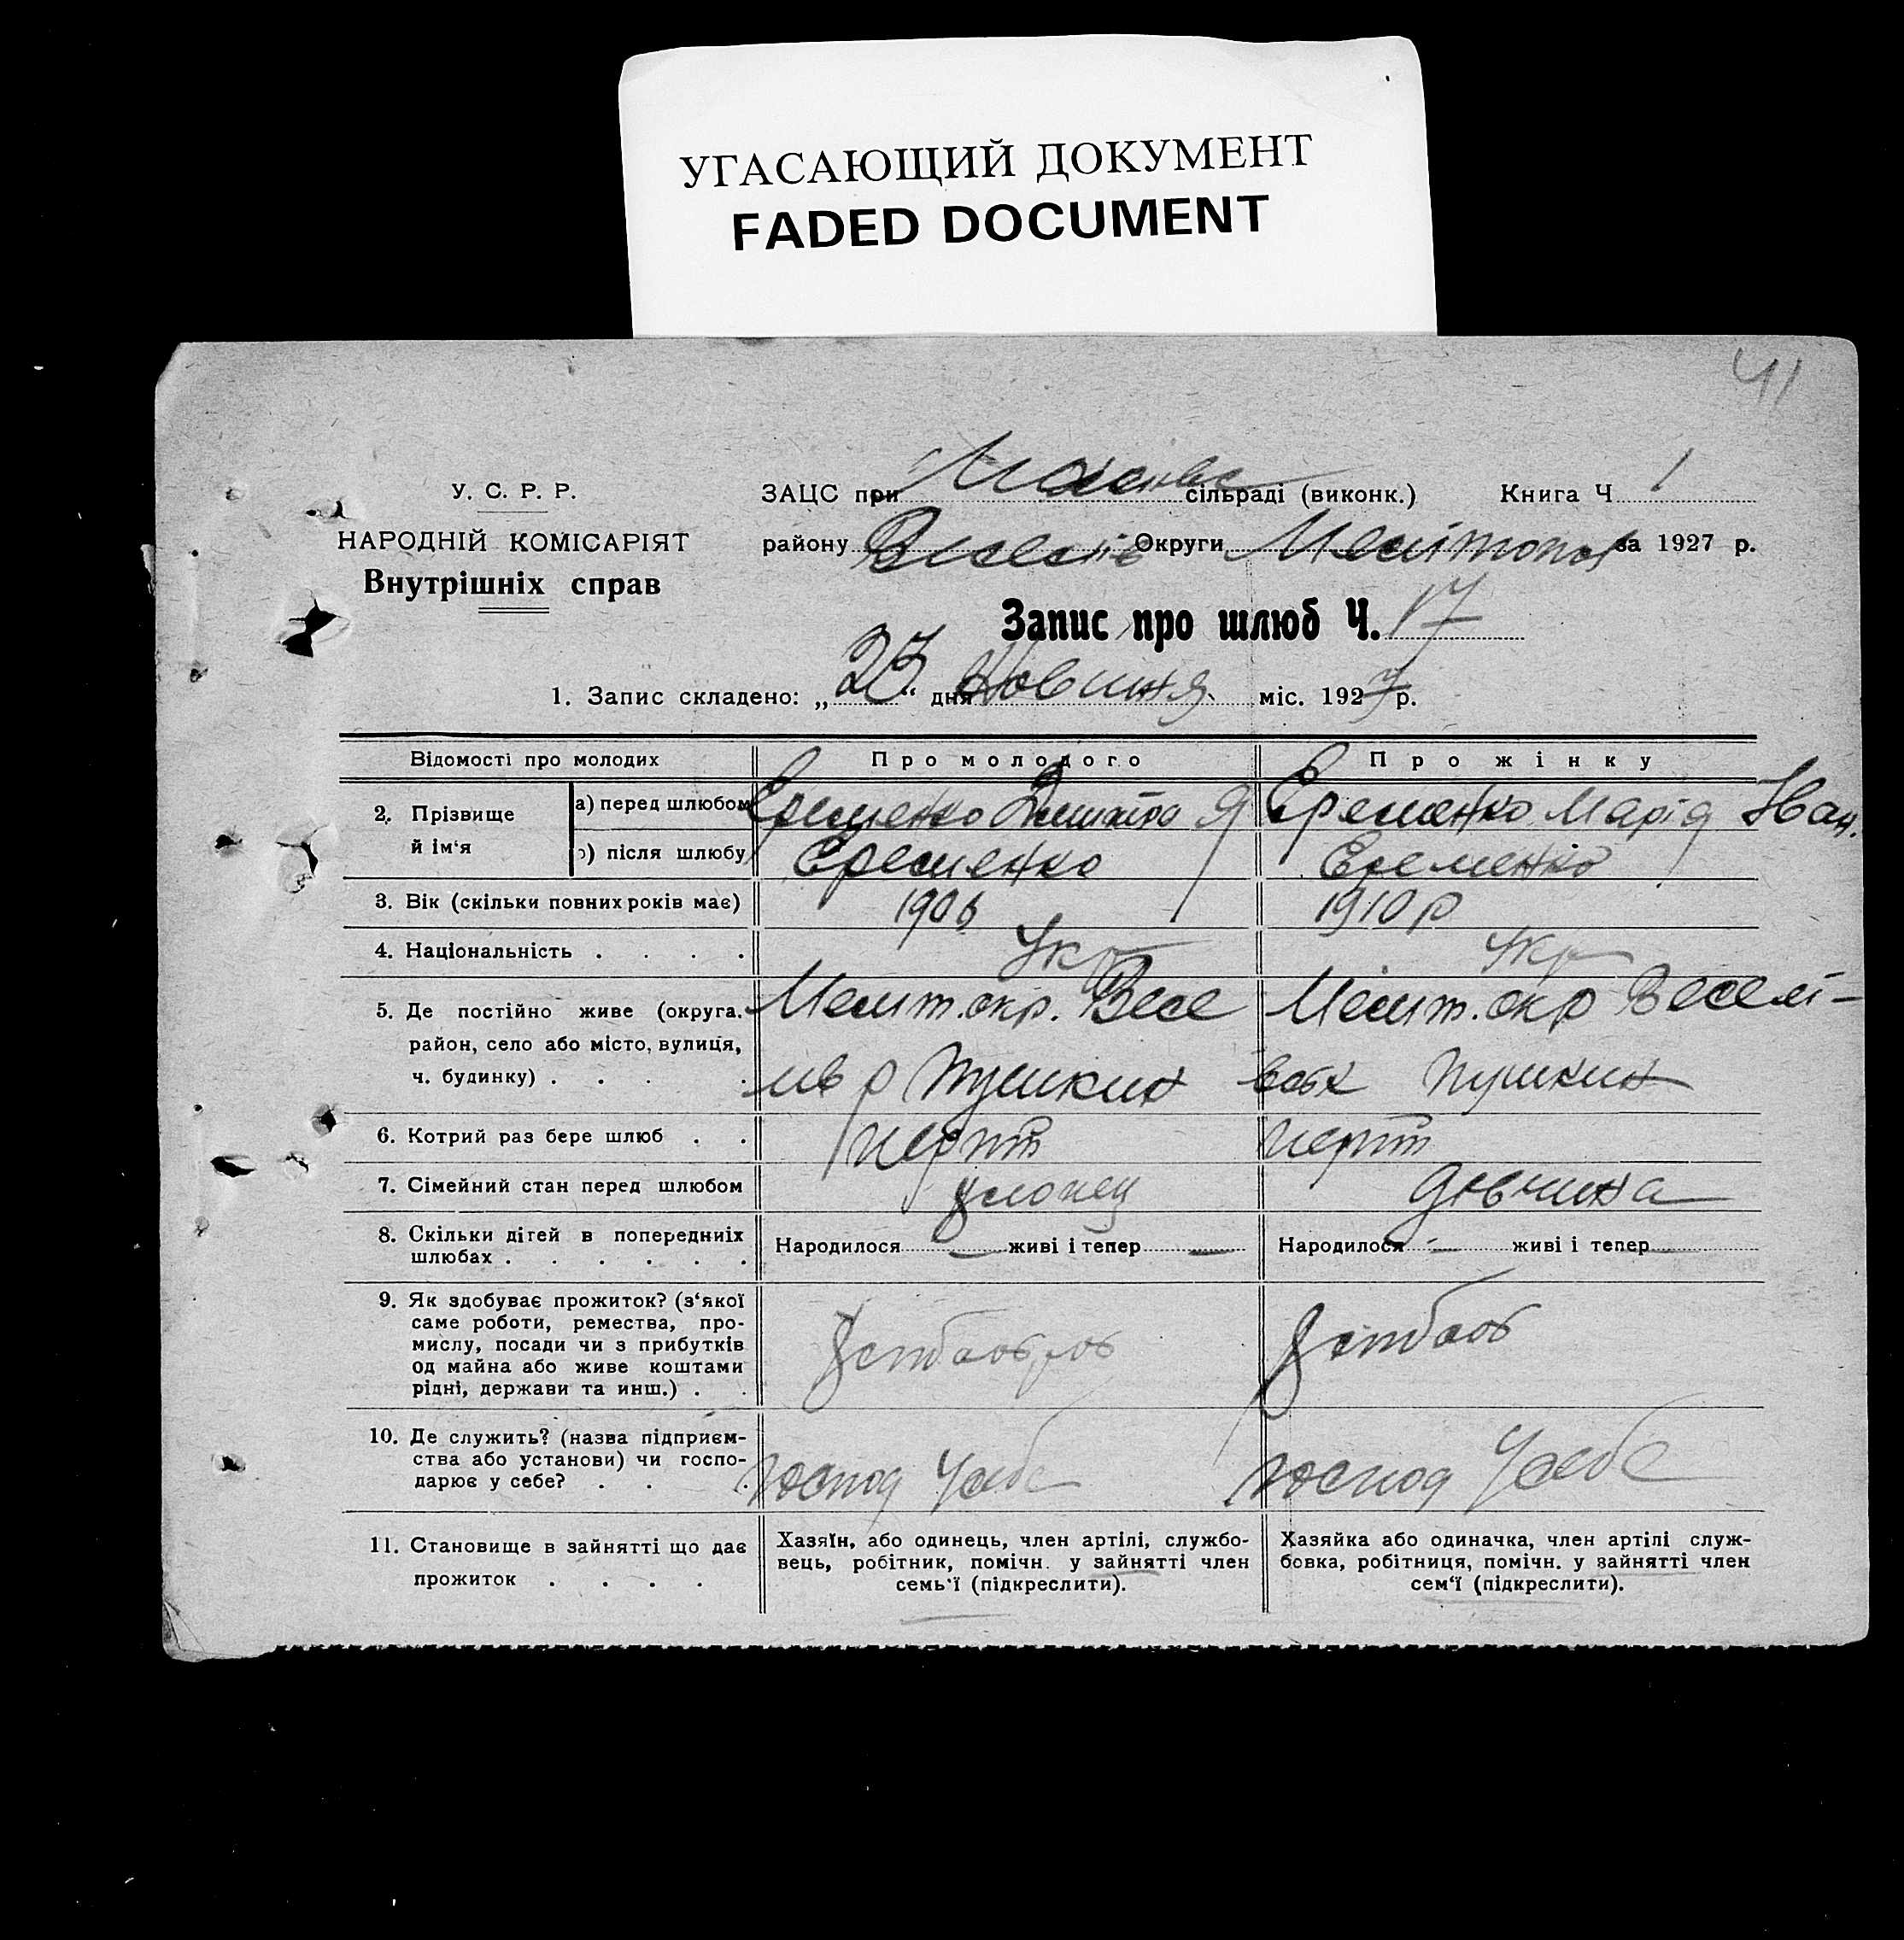 УГАСАЮЩИЙ ДОКУМЕНТ
FADED DOCUMENT
41
У. С. Р. Р.
НАРОДНІЙ КОМІСАРІЯТ
Внутрішніх справ
ЗАЦС при сільраді (виконк.) Книга Ч 1
району Округи Мелітопол за 1927 р.
Запис про шлюб Ч. 17
1. Запис складено: „ “ дня міс. 1927 р.
Відомості про молодих Про молодого Про жінку
2. Прізвище й ім‘я
а) перед шлюбом Еременко Дмитро Я Еременко Марія Іван.
б) після шлюбу Еременко Еременко
3. Вік (скільки повних років має) 1906 1910 р
4. Національність . . . . Укр Укр
5. Де постійно живе (округа. Мелит. окр. Весе Мелит. окр Веселі-
район, село або місто, вулиця,
ч. будинку) . . . . р Пушкин Пушкин
6. Котрий раз бере шлюб . . перший
7. Сімейний стан перед шлюбом хлопец дівчина
8. Скільки дітей в попередниіх
шлюбах . . . . . . Народилося — живі і тепер — Народилося — живі і тепер
9. Як здобуває прожиток? (з‘якої
саме роботи, ремества, про-
мислу, посади чи з прибутків
од майна або живе коштами
рідні, держави та инш.) . .
10. Де служить? (назва підприєм-
ства або установи) чи госпо-
дарює у себе? . . . господ У себе господ У себе
11. Становище в зайнятті що дає
прожиток . . . .
Хазяїн, або одинець, член артілі, службо-
вець, робітник, помічн. у зайнятті член
семь‘ї (підкреслити).
Хазяйка або одиначка, член артілі служ-
бовка, робітниця, помічн. у зайнятті член
сем‘ї (підкреслити).